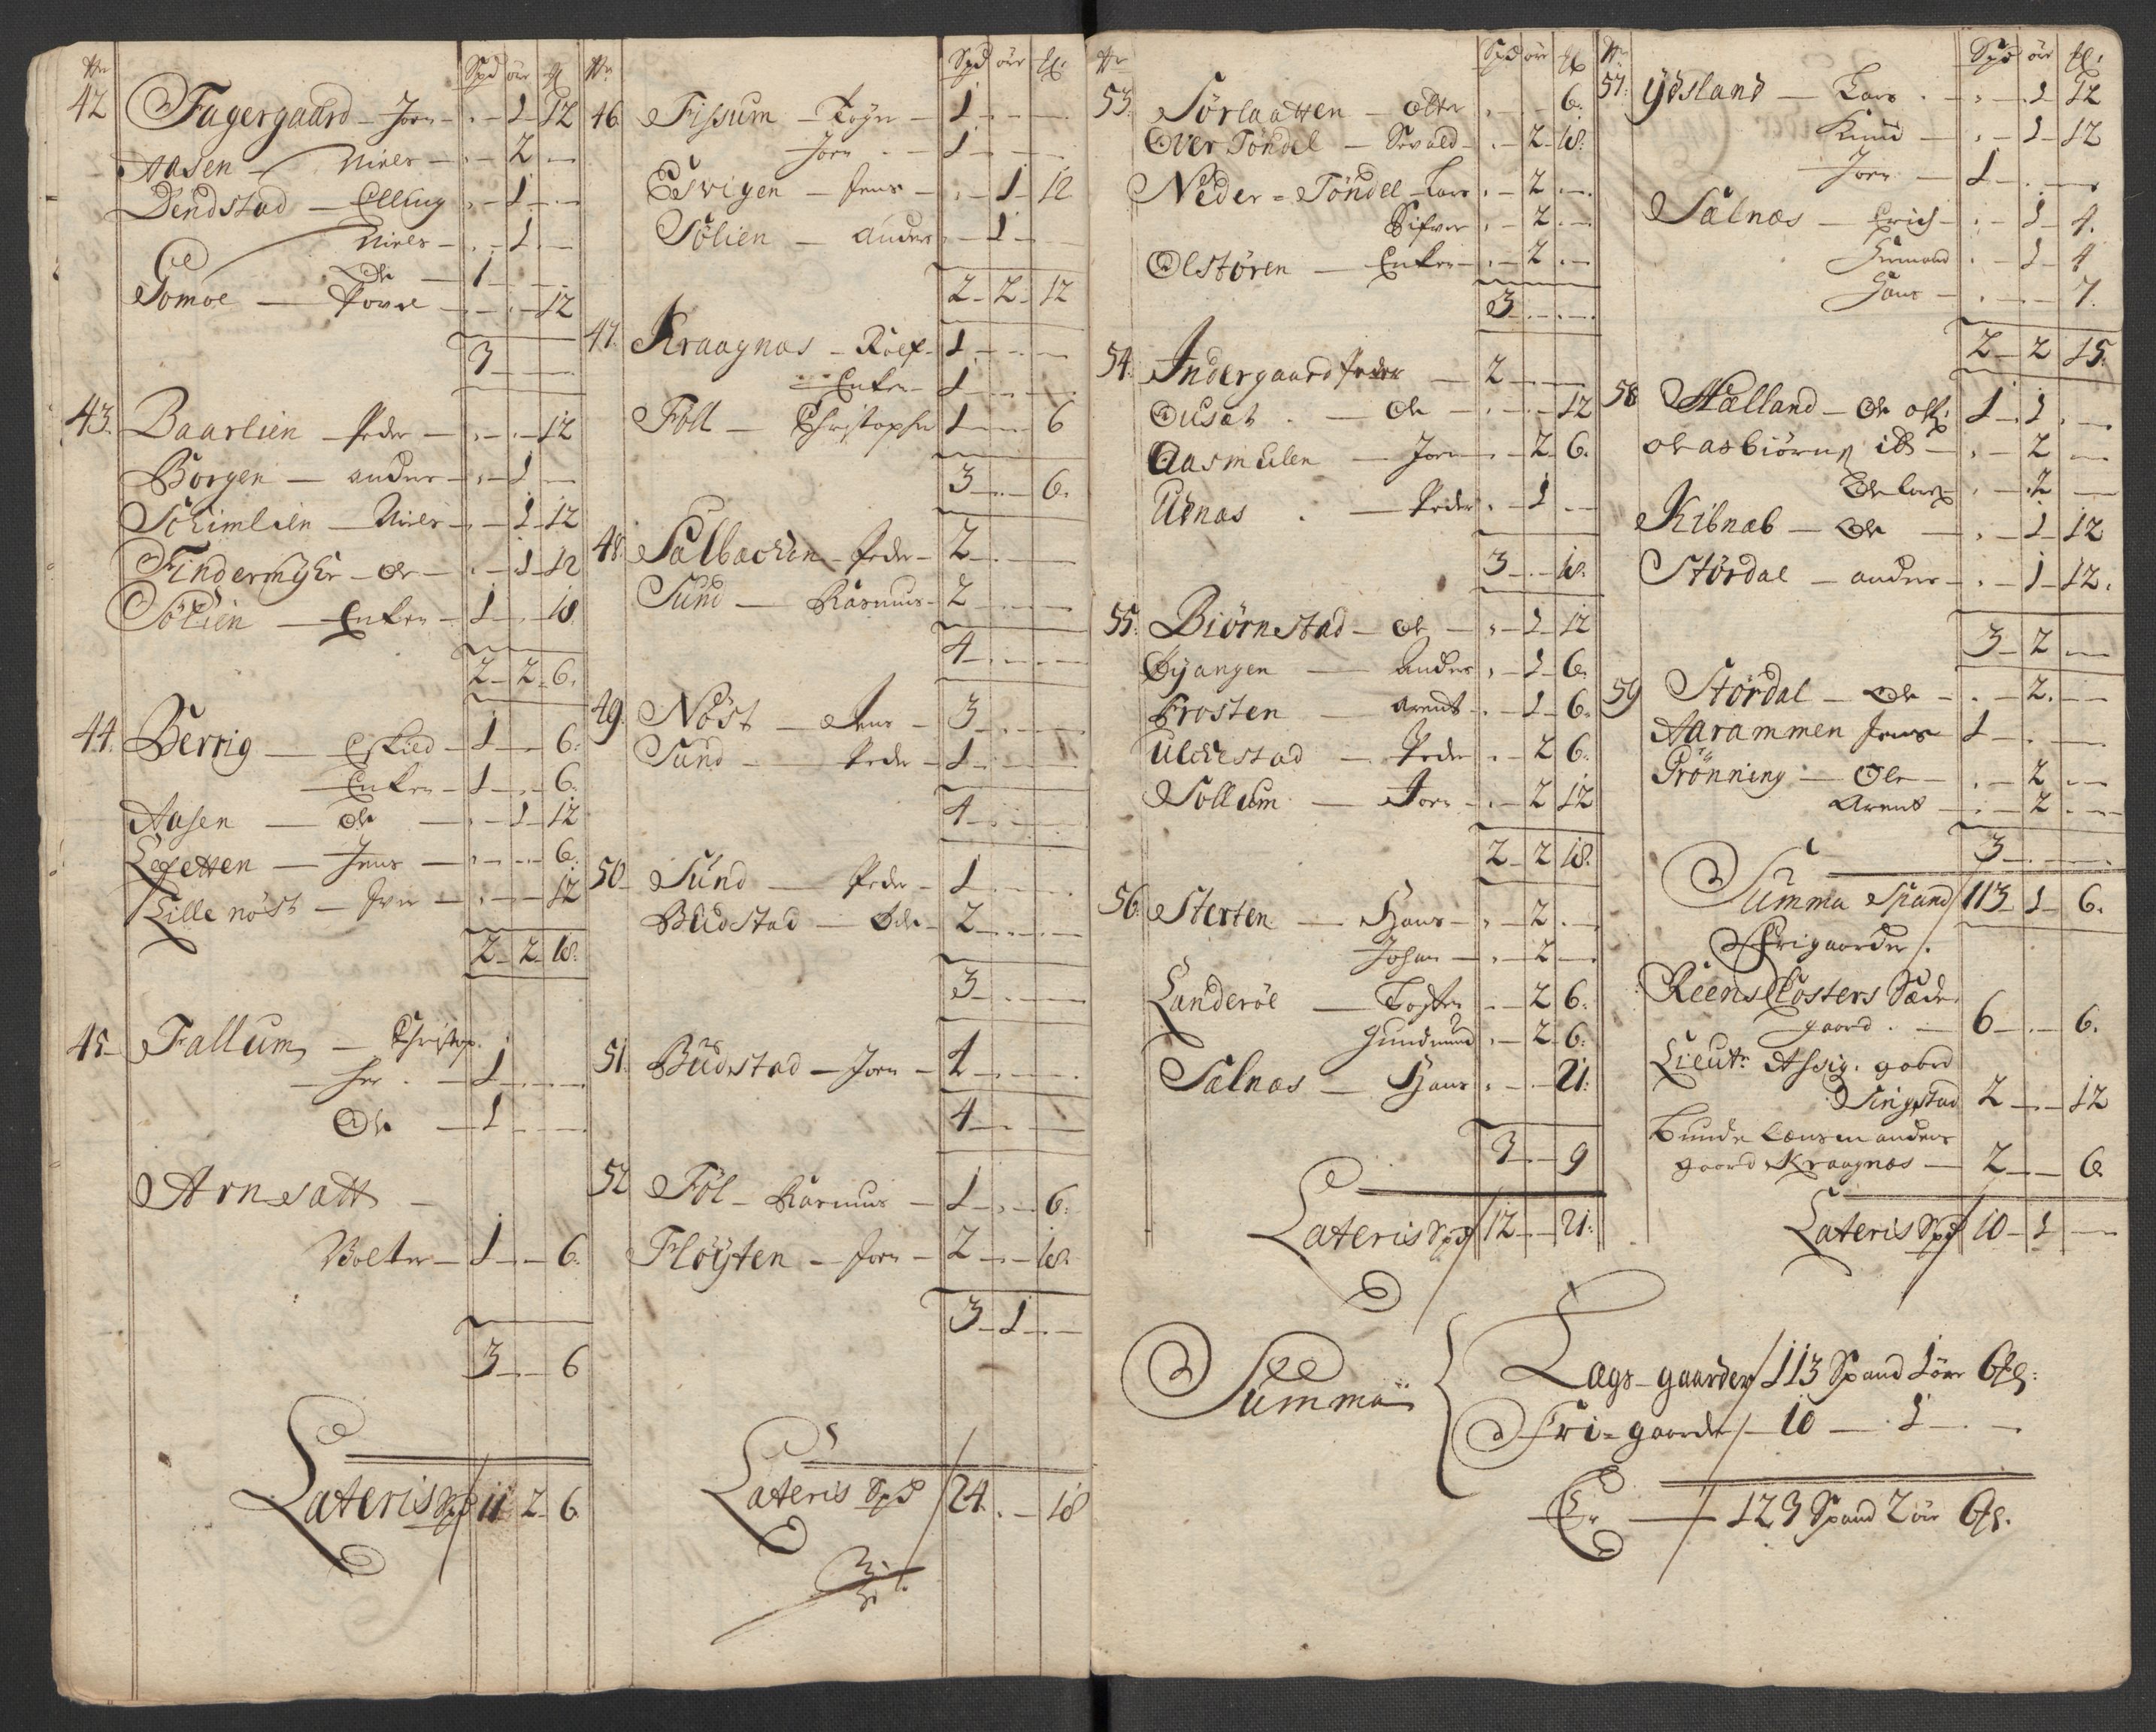 Nr Spd ör ꝥ
42 Fagergaard – Joen – . – 1 – 12
Aasen – Niels – . – 2 –
Dendstad – Elling . – 1 . –
Niels – . – 1 . –
Ole – 1 –
Gomoe – Povel – . – . – 12
3 – . –
43. Baarlien – Peder – . – . – 12
Borgen – anders – . – 1 –
Schimlien – Niels – . – 1 – 12
Findermyhr – Ole – . – 1 – 12
Sölien – Enken – 1 – . – 18
2 – 2 – 6.
44. Berrig – Eskild – 1 – . – 6.
Enken – 1 – . – 6.
Aasen – Ole – . – 1 – 12
Lexetten – Jens – . – . – 6.
Lille nöst – Iver – . – . – 12
2 – 2 – 18.
45 – Fallum – Christop
her . – 1 – . –
Ole – 1 – . –
Arnsatt –
Wolter – 1 – . – 6.
3 – . – 6
Lateris Spd 11 – 2 – 6
Nr Spd ör ꝥ
46. Fissum – – 1 – . –
Joen – 1 – . –
Esvigen – Jens – . – 1 – 12
Sölien – anders – . – 1 –
2 – 2 – 12
47. Kraagnas – Rolf – 1 – . –
Enken – 1 – . –
Föll – Christopher 1 – . – 6
3 – . – 6.
48. Salbachen – Peder – 2 – . –
Sund – Rasmus – 2 – . –
4 – . –
49. Nöst – Jens – 3 – . –
Sund – Peder – 1 – . –
4 – . –
50 – Sund – Peder – 1 – . –
Budstad – Ole – 2 – . –
3 – . –
51. Budstad – Joen – 4 – . –
4 – . –
52 Föl – Rasmus – 1 – . – 6.
Flöyten – Joen – 2 – . – 18.
3 – 1 – . –
Lateris Spd 24. . – 18
Nr Spd ör ꝥ
53. Sörlaatten – Otter . – . – 6.
Over Töndel – Sivold – . – 2 – 18.
Neder = Töndel – Lars . – 2 – . –
Sifver . – 2 . –
Olstören – Enken – . – 2 . –
3 – . –
54. Indergaard Peder – 2 – . –
Ousat . – Ole – . – . – 12
Aasmulen – Joen – . – 2 – 6.
Udnas . – Peder . – 1 . –
3 – . – 18.
55. Biörnstad – Ole – . – 1 – 12
Öyangen – Anders . – 1 – 6.
Frosten – Arent – . – 1 – 6.
Ulchestad – Peder . – 2 6.
Sollum – Joen – . – 2 12
2 – 2 18.
56. Sterten – Hans – . – 2 . –
Johan – . – 2 –
Landeröe – Tosten . – 2 6.
Gundmund . – 2 – 6.
Salnas – Hans . – . – 21.
3 – . – 9
Lateris Spd 12 – . – 21.
Nr Spd ör ꝥ
57. Ydsland – Lars . – . – 1 – 12
Knud – . – 1 – 12
Joen – 1 – . –
Salnæs – Erich – . – 1 – 4.
. – 1 – 4
Hans – . – . – 7.
2 – 2 15.
58 Halland – Ole 1 – 1 . –
ole asbiörns – . – 2 –
Ole Lars . – 2 –
Kibnæb – Ole – . – 1 – 12
Stördal – anders – . – 1 – 12.
3 – 2 –
59 Stördal – Ole – . – 2. –
Aarammen Jens 1 – . –
Grönning – Ole – . – 2 –
Arent – . – 2 . –
3 – . –
Summa Spand 113 – 1 – 6.
Frigaarder.
Reens Closters Sæde
gaard . – 6 – . – 6.
Lieutn: Assig. gaard
Singstad 2 – . – 12
Bunde Lænsmandens
gaard Kraagnæs – 2 – . – 6
Lateris Spd 10 – 1 –
Summa
Lægs – gaarder 113 Spand 1 ör 6 ꝥ:
Fri = gaarder – 10 – 1 – . –
Er – 123 Spand 2 ör 6 ꝥ.